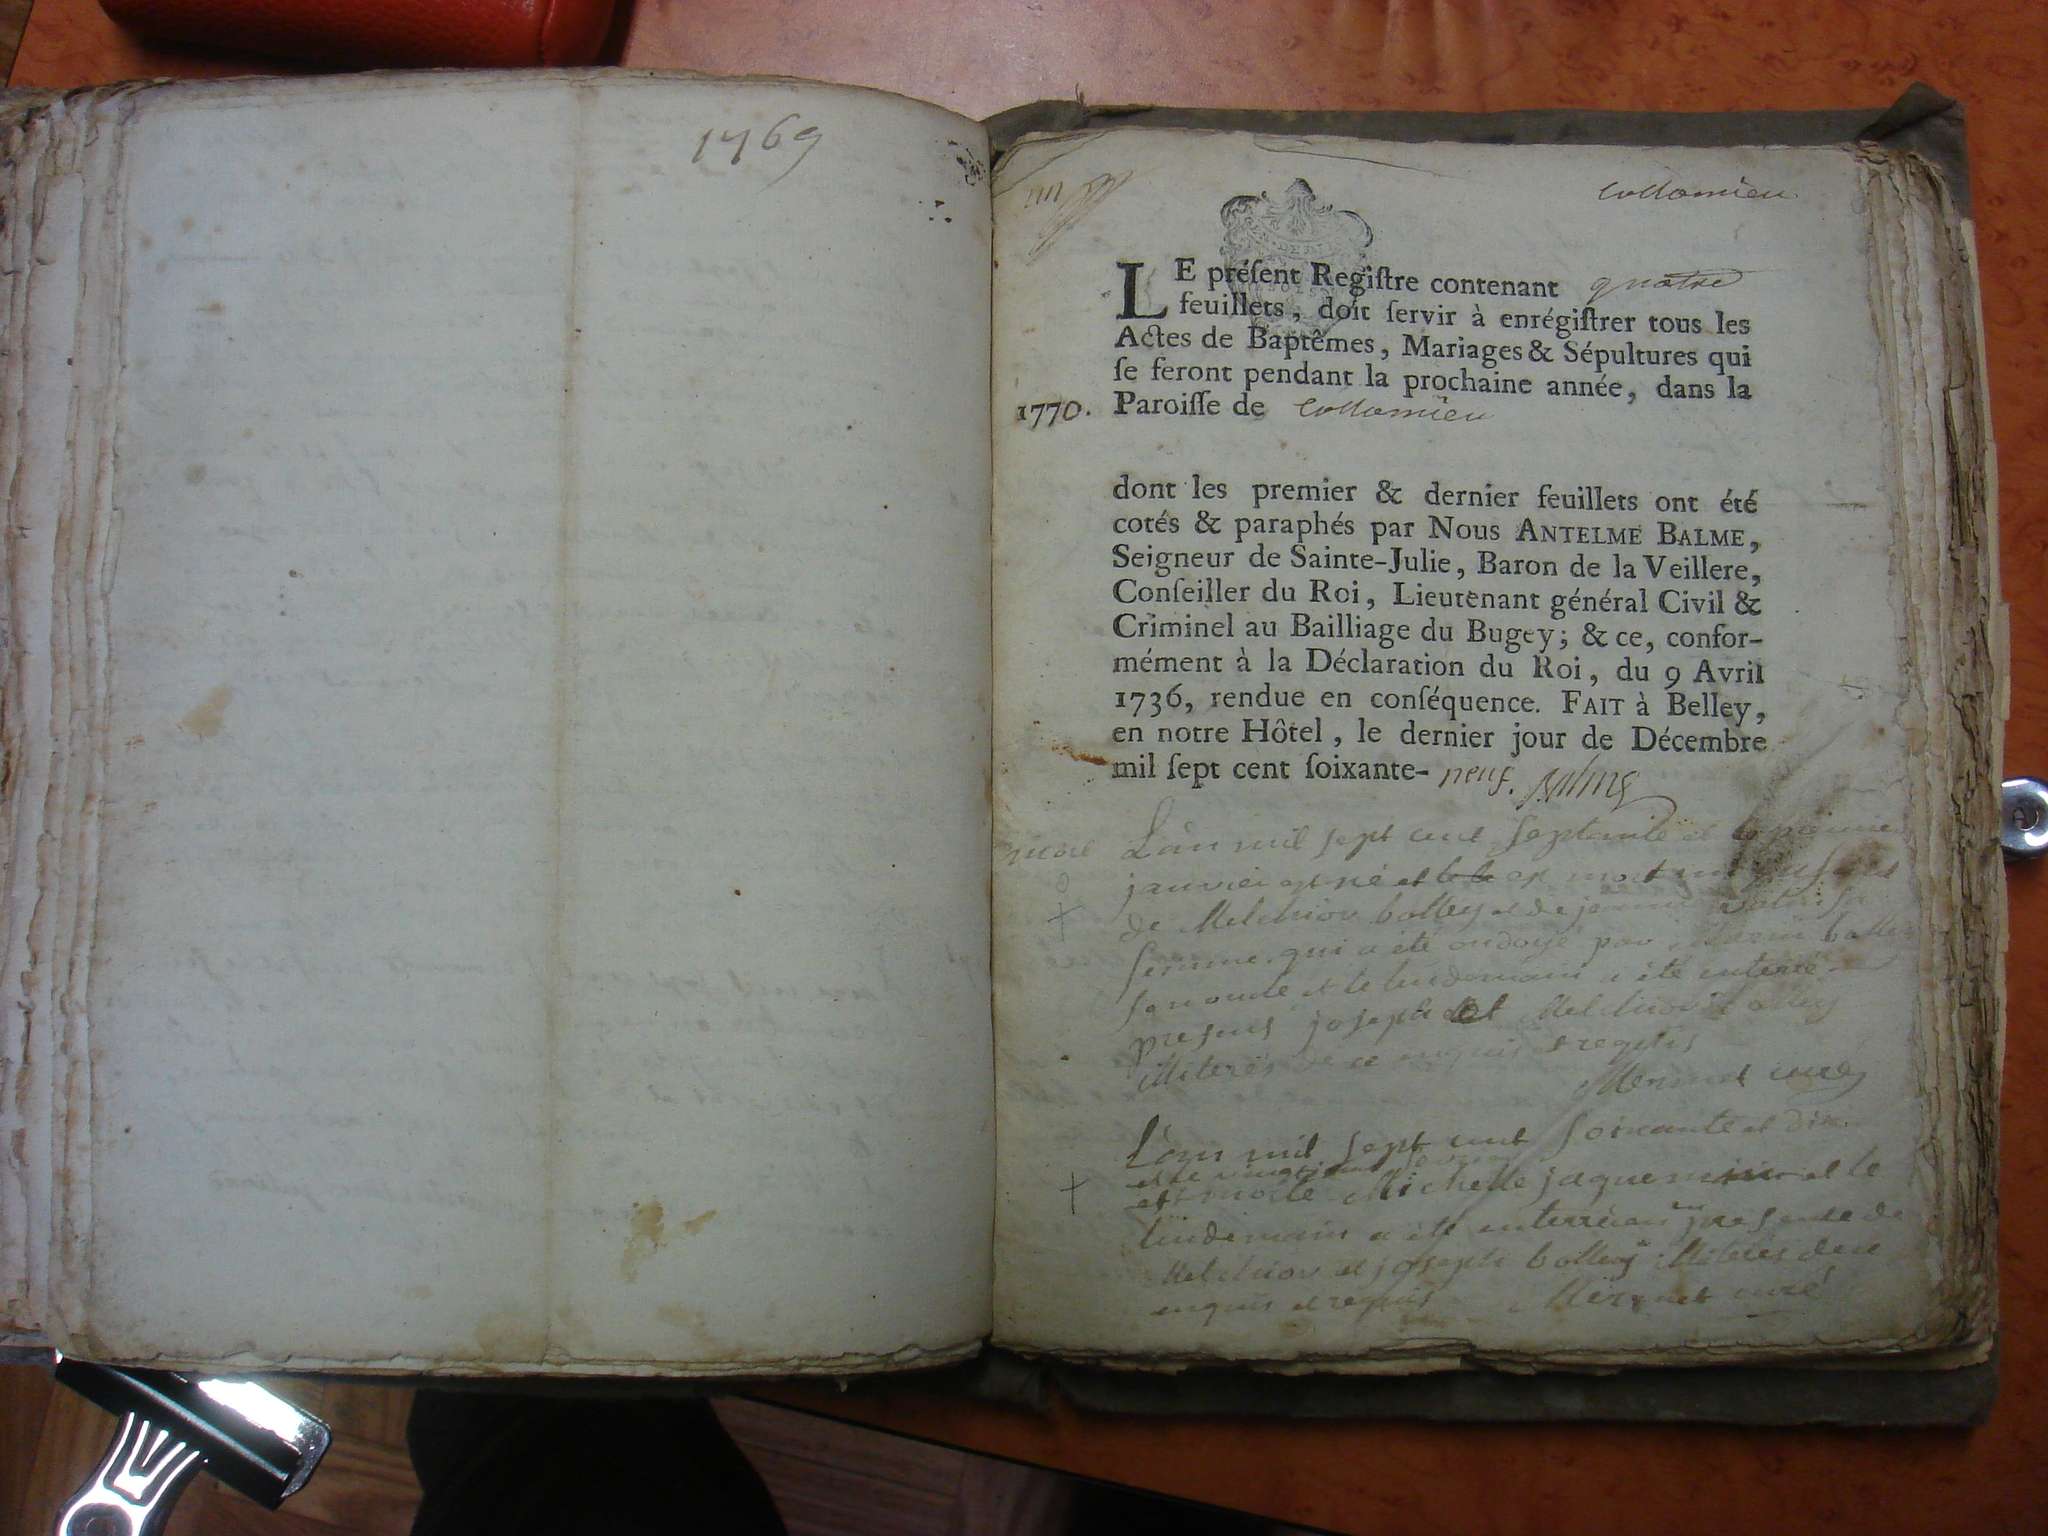 1769
Collomieu
LE préſent Regiſtre contenant quatre
feuillets, doit ſervir à enrégiſtrer tous les
Actes de Baptêmes, Mariages & Sépultures qui
ſe feront pendant la prochaine année, dans la
1770. Paroiſſe de Collomieu
dont les premier & dernier feuillets ont été
cotés & paraphés par NOUS ANTELME BALME,
Seigneur de Sainte-Julie, Baron de la Veillere,
Conſeiller du Roi, Lieutenant général Civil &
Criminel au Bailliage du Bugey; & ce, confor-
mément à la Déclaration du Roi, du 9 Avril
1736, rendue en conſéquence. FAIT à Belley,
en notre Hôtel, le dernier jour de Décembre
mil ſept cent ſoixante- neuf. Balme
L'an mil sept cent septante et le premier
janvier est né et est mort un
de Melchior bolley et de sa
femme qui a été ondoyé par bolley
son oncle et le lendemain a été enterré
presens joseph et Melchior bolley
de ce enquis et requis
curé
L'an mil sept cent soixante et dix
et le
est morte Michelle jaquemin et le
lindemain a été enterré en presence de
Melchior et joseph bolley de ce
enquis et requis curé